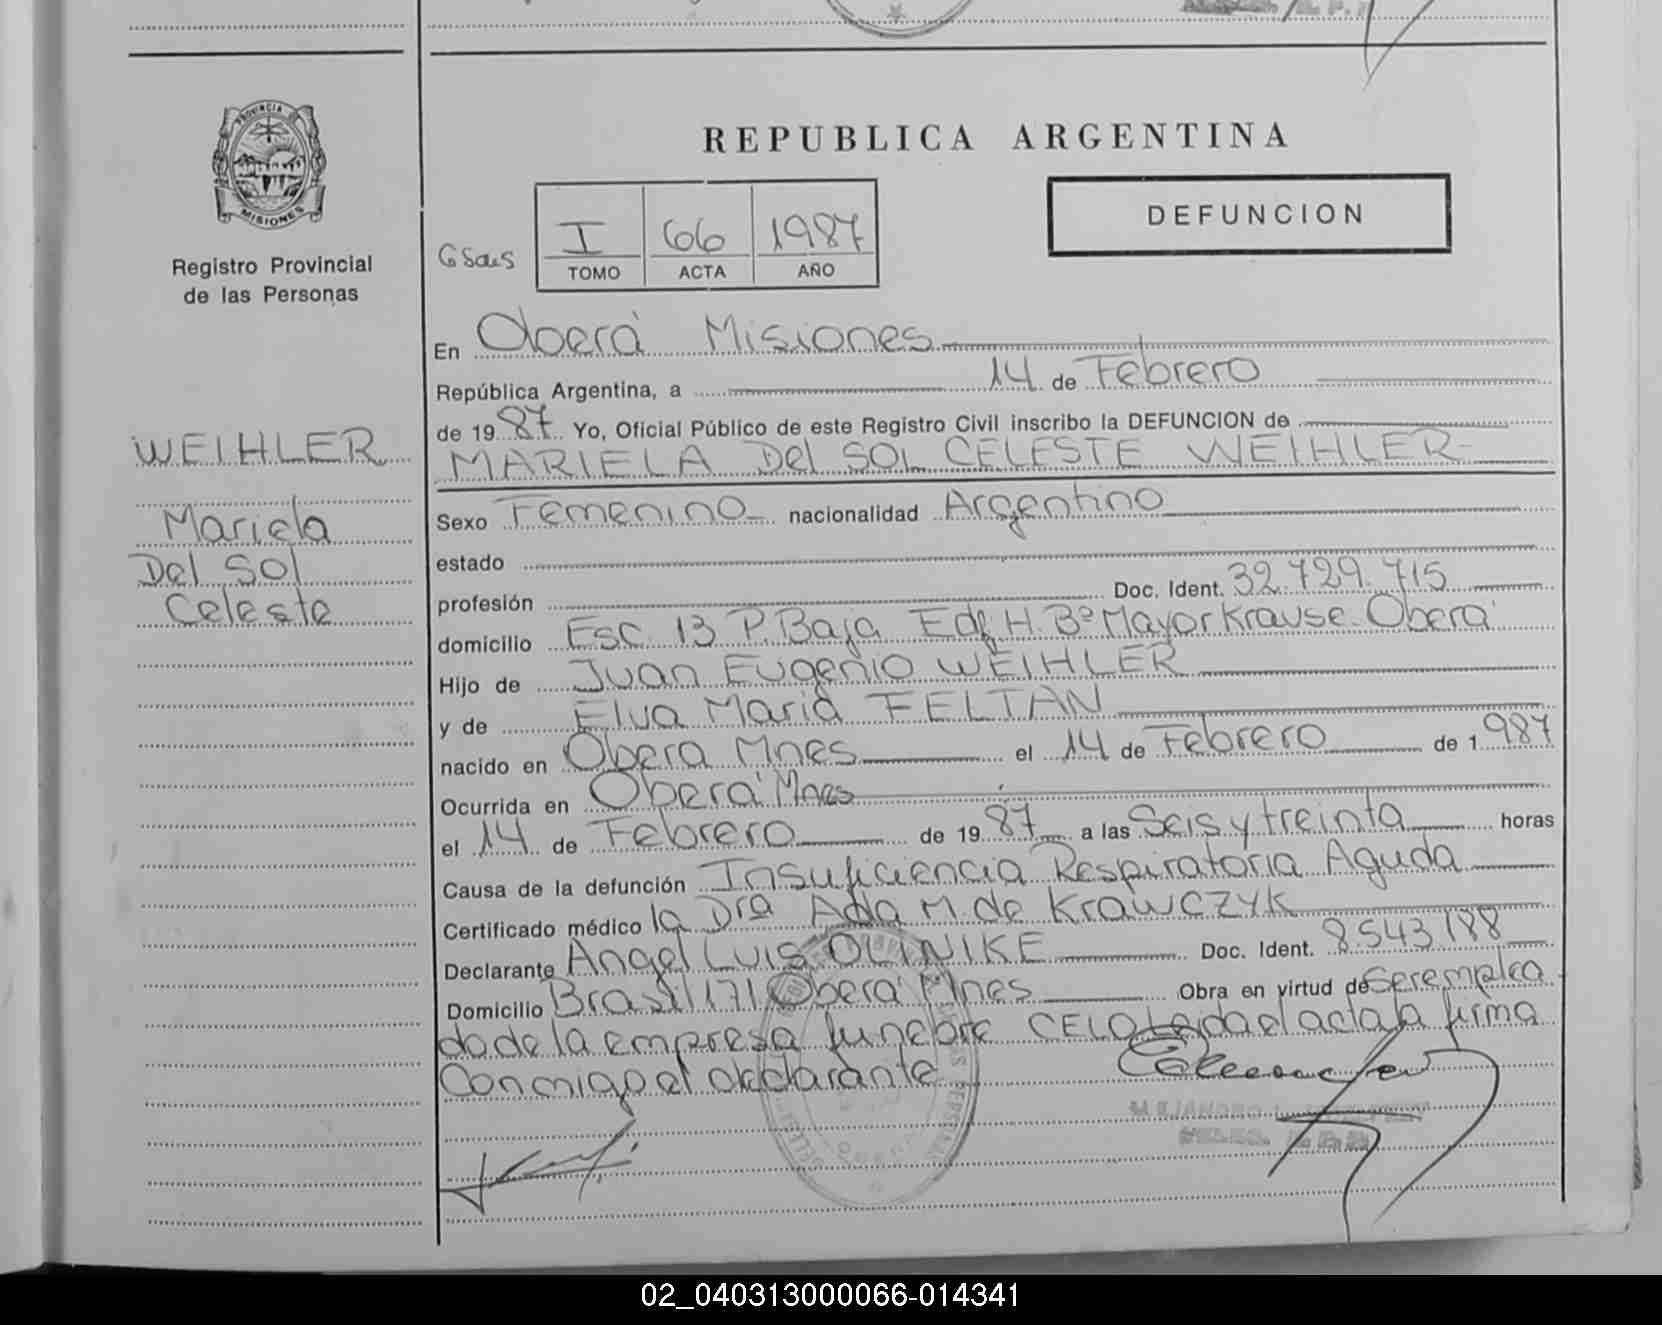 PROVINCIA
MISIONES
Registro Provincial
de las Personas
WEIHLER
Mariela
Del Sol
Celeste
REPUBLICA ARGENTINA
DEFUNCION
I 66 1987
TOMO ACTA AÑO
En Oberá Misiones
República Argentina, a 14 de Febrero
de 1987. Yo, Oficial Público de este Registro Civil inscribo la DEFUNCION de
MARIELA Del SOL CELESTE WEIHLER
Sexo Femenino nacionalidad Argentino
estado
profesión Doc. Ident. 32.729.715
domicilio Esc. 13 P. Baja Edf. H. Bº Mayor Krause. Oberá
Hijo de Juan Eugenio WEIHLER
y de Elva María FELTAN
nacido en Oberá Mnes el 14 de Febrero de 1987
Ocurrida en Oberá Mnes
el 14 de Febrero de 1987 a las Seis y treinta horas
Causa de la defunción Insuficiencia Respiratoria Aguda
Certificado médico la Dra Ada M. de KRAWCZYK
Declarante Angel Luis OLINIKE Doc. Ident. 8.543.188
Domicilio Brasil 171 Oberá Mnes Obra en virtud de ser emplea
do de la empresa funebre CELO Leida el acta la firma
Conmigo el declarante
02_040313000066-014341